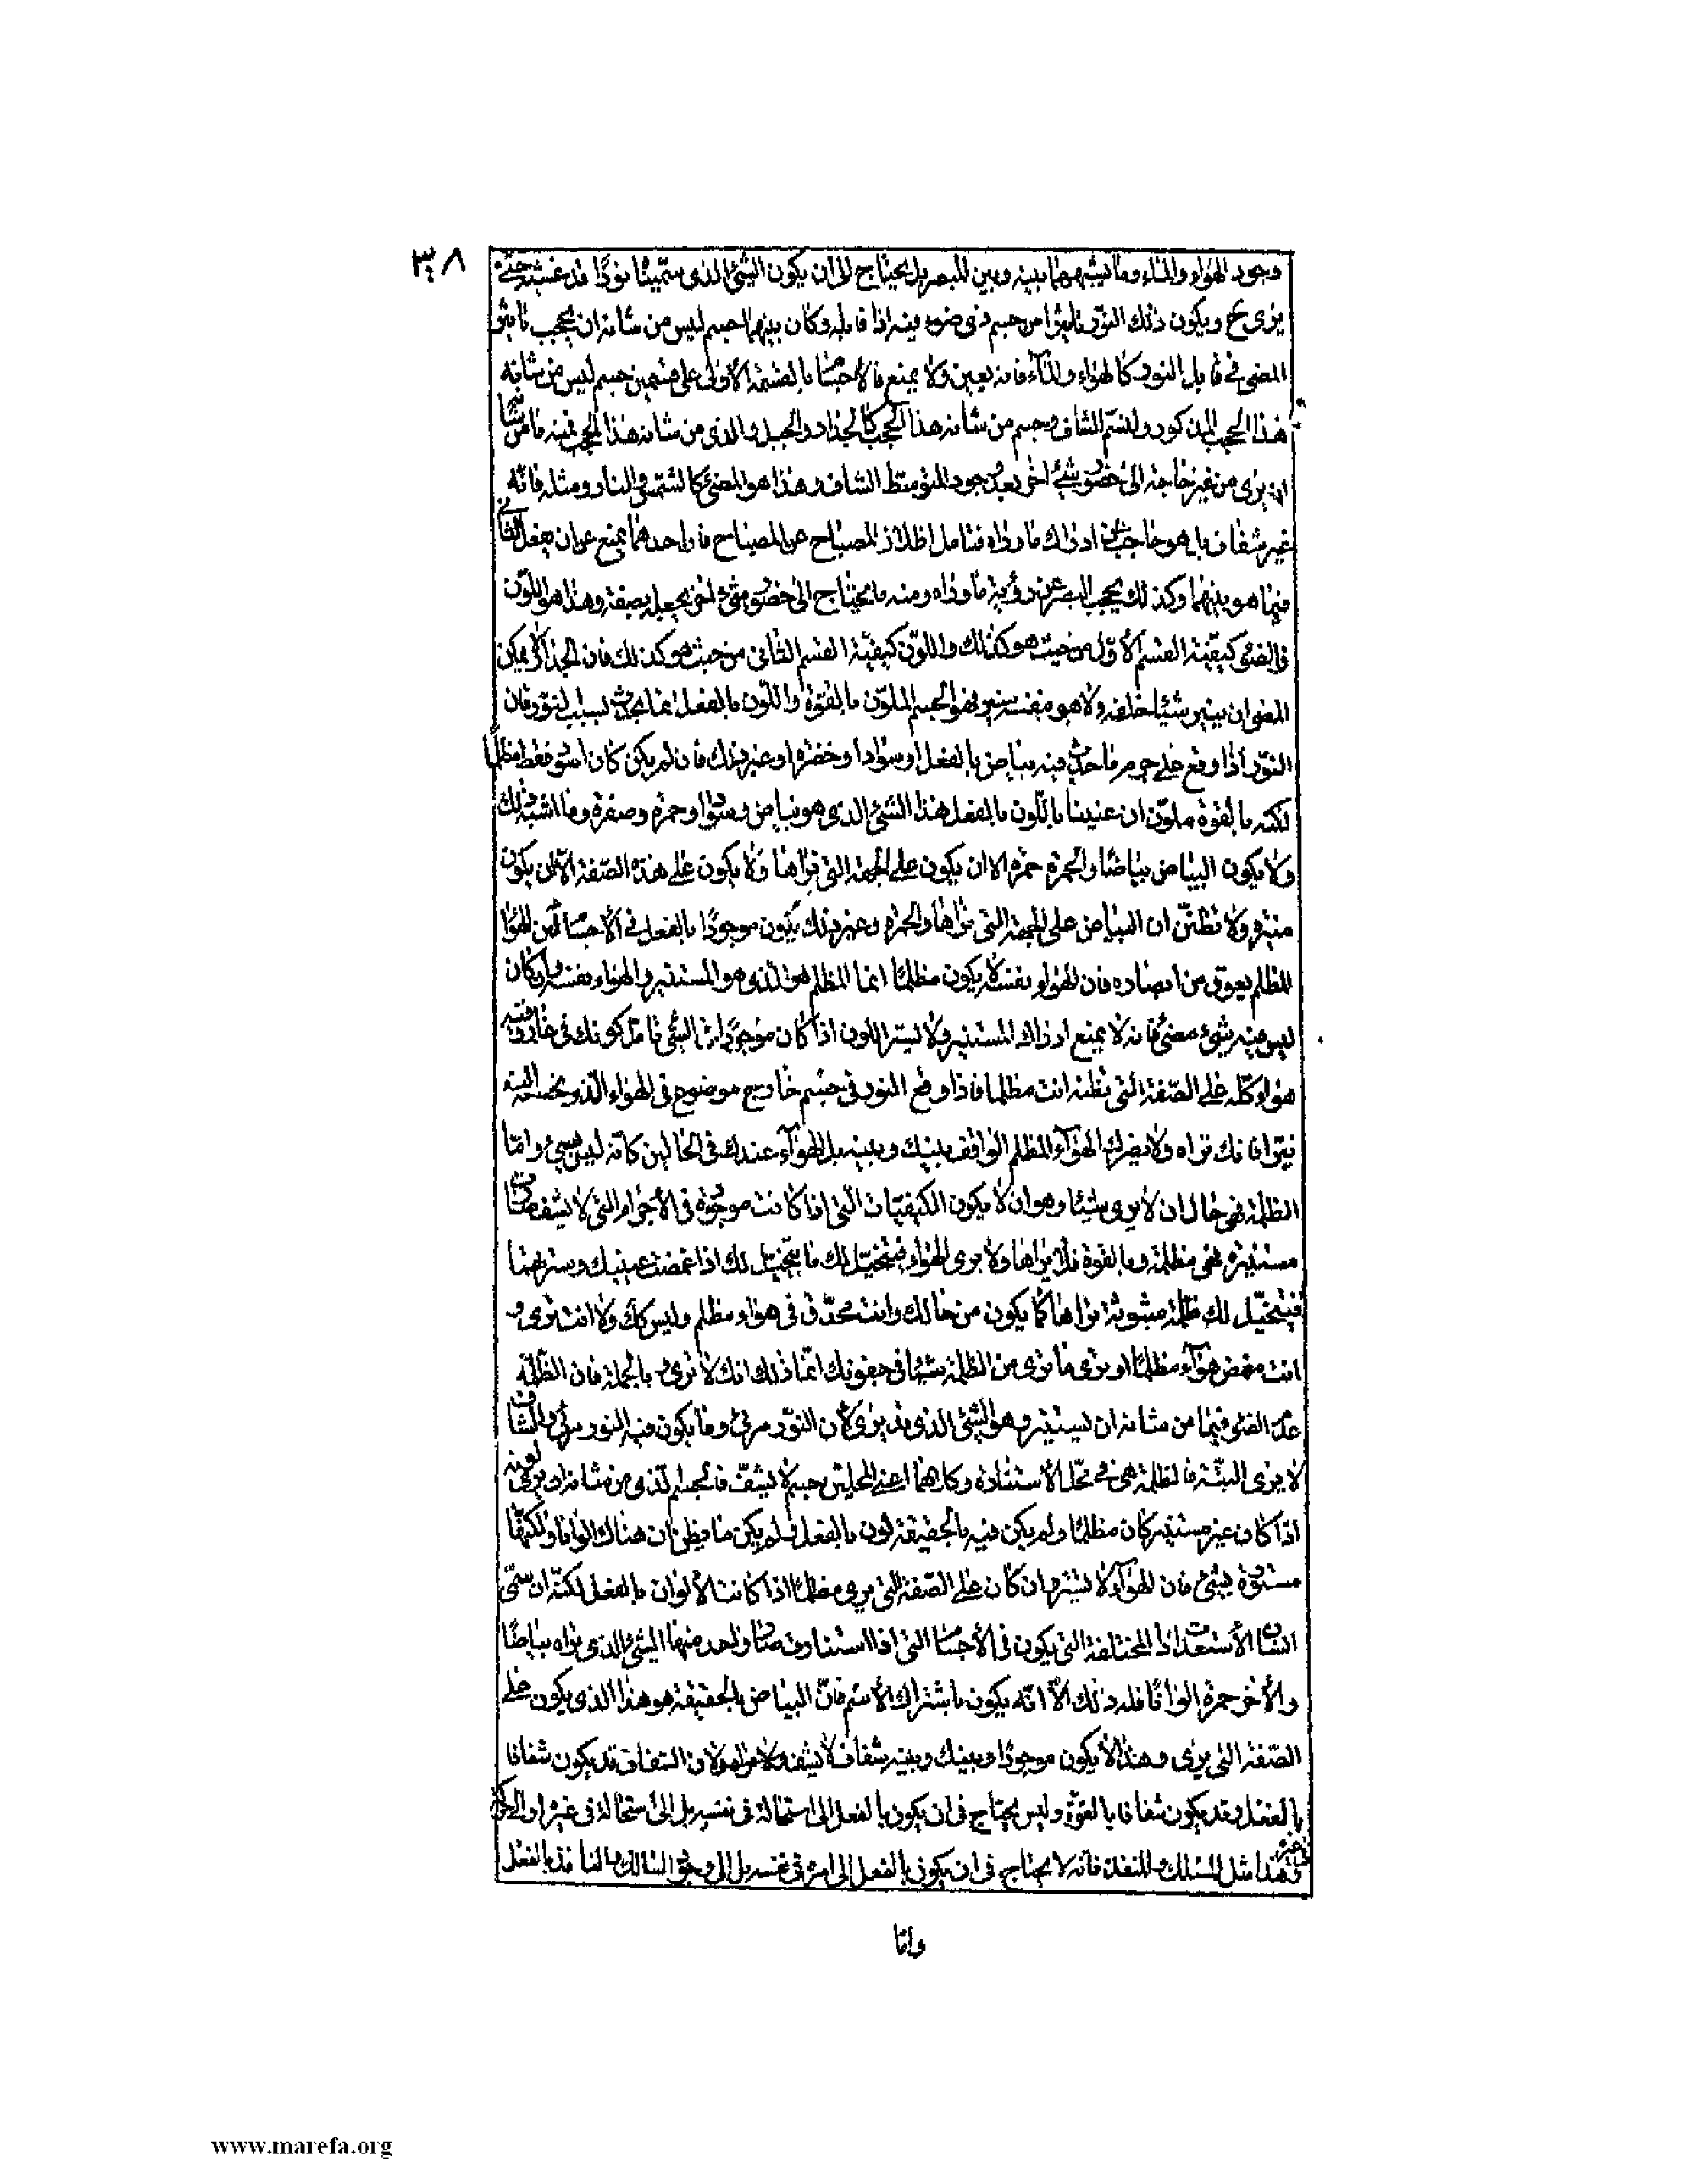 ٣٠٨
وجود الهواء والماء وما يشبههما بينه وبين المبصر بل يحتاج الى ان يكون الشئ الذى سميناه نورًا قد غشيه حتى
يرى ويكون ذلك النور تاثيرا من جسم ذى ضوء فيه اذا قابله وكان بينهما جسم ليس من شانه ان يحجب تاثير
المضى فى قابل النور كالهواء والماء فانه يعين ولا يمنع فالاجسام بالقسمة الأولى على قسمين جسم ليس من شانه
هذا الحجب المذكور وليسم الشاف وجسم من شانه هذا الحجب كالجدار والجبل والذى من شانه هذا الحجب فمنه ما من شانه
ان يرى من غير حاجة الى حضور شئ آخر بعد وجود المتوسط الشاف وهذا هو المضئ كالشمس والنار ومثله فانه
غير شفاف بل هو حاجب عن ادراك ما وراه فتامل اظلال المصباح عن المصباح فان احدهما يمنع عن ان يفعل الثانى
فيما هو بينهما وكذلك يحجب البصر عن رؤية ما وراه ومنه ما يحتاج الى حضور شئ آخر يجعله بصفة وهذا هو اللون
فالضوء كيفية القسم الأول من حيث هو كذلك واللون كيفية القسم الثانى من حيث هو كذلك فان الجدار لا يمكن
المضى ان ينير شيئا خلفه ولا هو بنفسه منير فهو الجسم الملون بالقوة واللون بالفعل انما يحدث بسبب النور فان
النور اذا وقع على جرم ما حدث فيه بياض بالفعل او سواد او خضرة او غير ذلك فان لم يكن كان اسود فقط مظلما
لكنه بالقوة ملون ان عنينا باللون بالفعل هذا الشئ الذى هو بياض وسواد وحمرة وصفرة وما اشبه ذلك
ولا يكون البياض بياضا والحمرة حمرة الا ان يكون على الجهة التى نراها ولا يكون على هذه الصفة الا ان يكون
منيرة ولا تظنن ان البياض على الجهة التى نراها والحمرة وغير ذلك يكون موجودًا بالفعل فى الأجسام لكن الهواء
المظلم يعوق من ابصاره فان الهواء نفسه لا يكون مظلما انما المظلم هو الذى هو المستنير والهواء نفسه وان كان
ليس فيه شئ مضئ فانه لا يمنع ادراك المستنير ولا يستر اللون اذا كان موجودا فى الشئ تامل كونك فى غار وفيه
هواء كله على الصفة التى تظنه انت مظلما فاذا وقع النور فى جسم خارج موضوع فى الهواء الذى تحسبه
نيرا فانك تراه ولا يضرك الهواء المظلم الواقف بينك وبينه بل الهواء عندك فى الحالين كانه ليس بشئ واما
الظلمة فهى حال ان لا يرى شيئا وهو ان لا يكون الكيفيات التى اذا كانت موجودة فى الأجرام التى لا تشف صارت
مستنيرة فهى مظلمة وبالقوة فلا تراها ولا يرى الهواء فيتخيل لك ما يتخيل لك اذا غمضت عينيك وسترتهما
فيتخيل لك ظلمة مبثوثة تراها كما يكون من حالك وانت محدق فى هواء مظلم وليس كك ولا انت ترى و
انت مغمض هواء مظلما او ترى ما ترى من الظلمة شيئا فى جفونك انما ذلك انك لا ترى وبالجملة فان الظلمة
عدم الضوء فيما من شانه ان يستنير وهو الشئ الذى قد يرى لأن النور مرئى وما يكون فيه النور مرئى والشاف
لا يرى البتة فالظلمة هى فى محل الأستنارة وكلاهما اعنى المحلين جسم لا يشف فالجسم الذى من شانه ان يرى لونه
اذا كان غير مستنير كان مظلما ولم يكن فيه بالحقيقة لون بالفعل فلم يكن ما يظن ان هناك الوانا ولكنها
مستورة بشئ فان الهواء لا يستر وان كان على الصفة التى يرى مظلما اذا كانت الألوان بالفعل لكنه ان سمى
انسان الأستعدادات المختلفة التى يكون فى الأجسام التى اذا استنارت صار واحد منها الشئ الذى تراه بياضا
والأخر حمرة الوانا فله ذلك الا انه يكون باشتراك الأسم فان البياض بالحقيقة هو هذا الذى يكون على
الصفة التى يرى وهذا لا يكون موجودا وبينك وبينه شفاف لا يشف ولان الشفاف قد يكون شفافا
بالفعل وقد يكون شفافا بالقوة وليس يحتاج فى ان يكون بالفعل الى استحالة فى نفسه بل الى استحالة فى غيره او الى حركة
فى غيره
وهذا مثل المسلك والمنفذ فانه لا يحتاج فى ان يكون بالفعل الى امر فى نفسه بل الى وجود السالك والنافذ بالفعل
واما
www.marefa.org